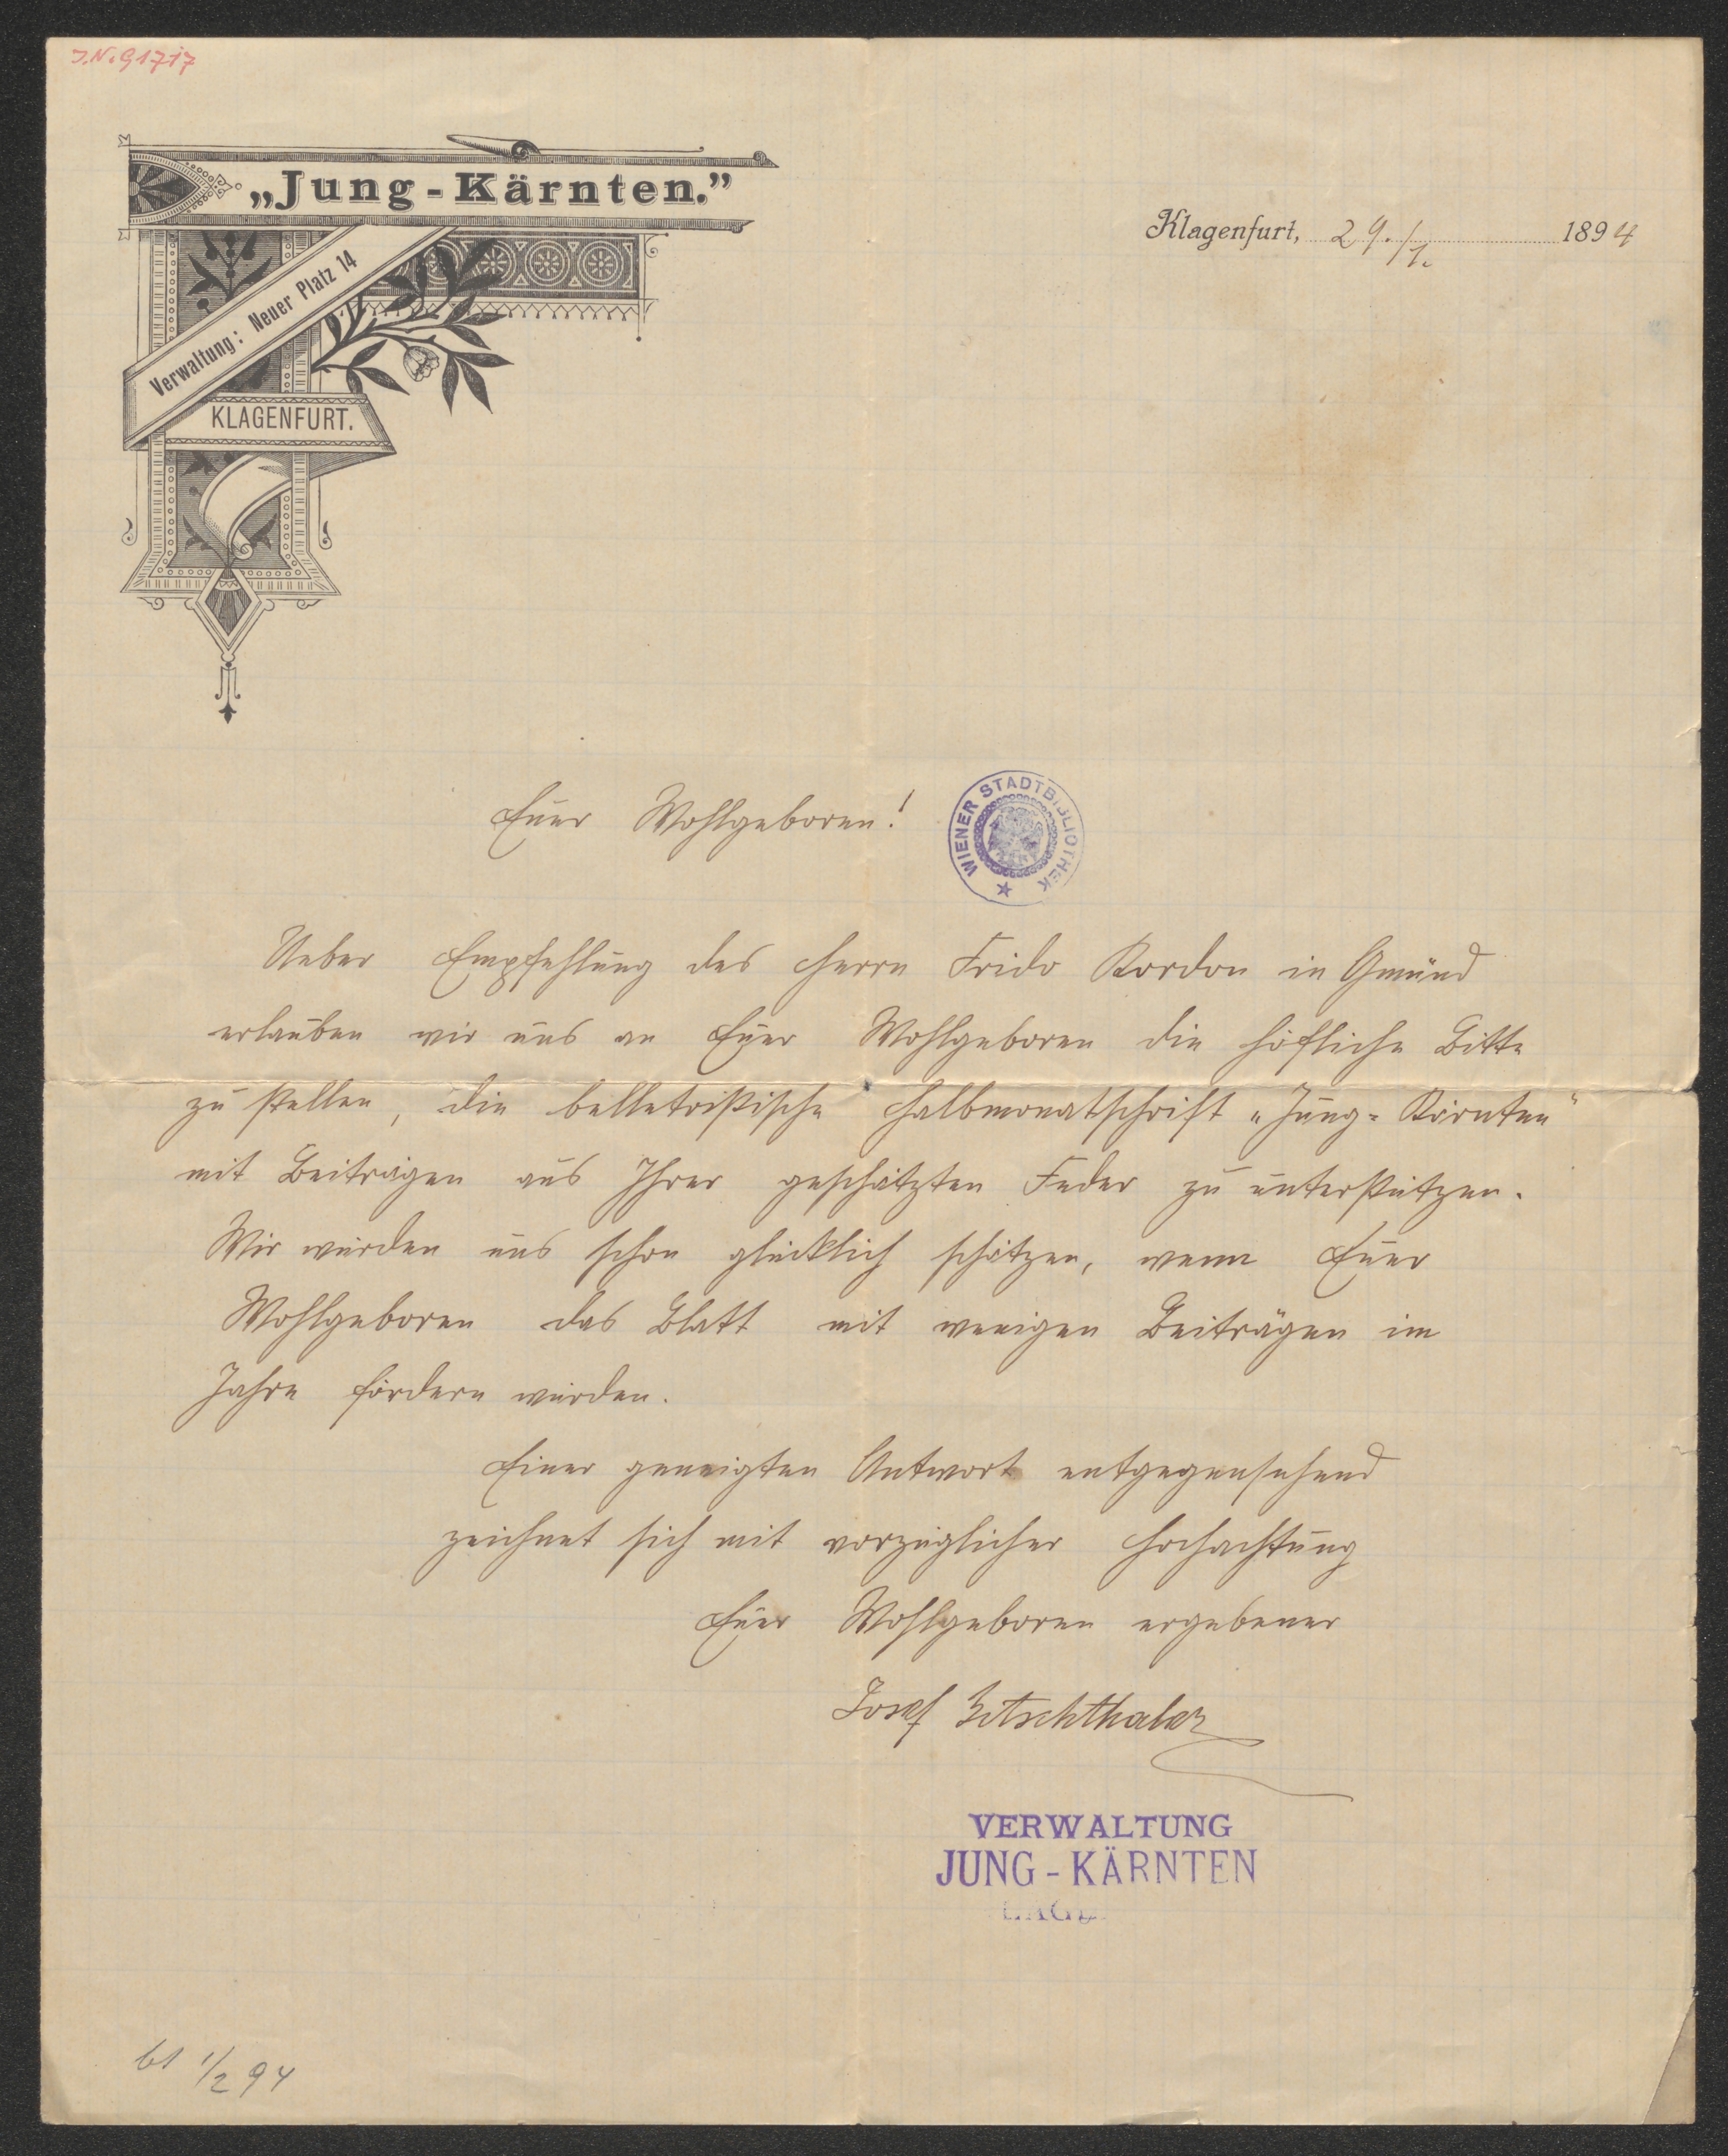 J.N. 91717
„Jung-Kärnten.”
Verwaltung: Neuer Platz 14
KLAGENFURT.
Klagenfurt, 29./1. 1894
Euer Wohlgeboren!
WIENER STADTBIBLIOTHEK
Ueber Empfehlung des Herrn Frido Kordon in Gmünd
erlauben wir uns an Euer Wohlgeboren die höfliche Bitte
zu stellen, die belletristische Halbmonatschrift „Jung-Kärnten“
mit Beiträgen aus Ihrer geschätzten Feder zu unterstützen.
Wir würden uns schon glücklich schätzen, wenn Euer
Wohlgeboren das Blatt mit wenigen Beiträgen im
Jahre fördern würden.
Einer geneigten Antwort entgegensehend
zeichnet sich mit vorzüglicher Hochachtung
Euer Wohlgeboren ergebener
Josef Gitschthaler
VERWALTUNG
JUNG-KÄRNTEN
1/2 94